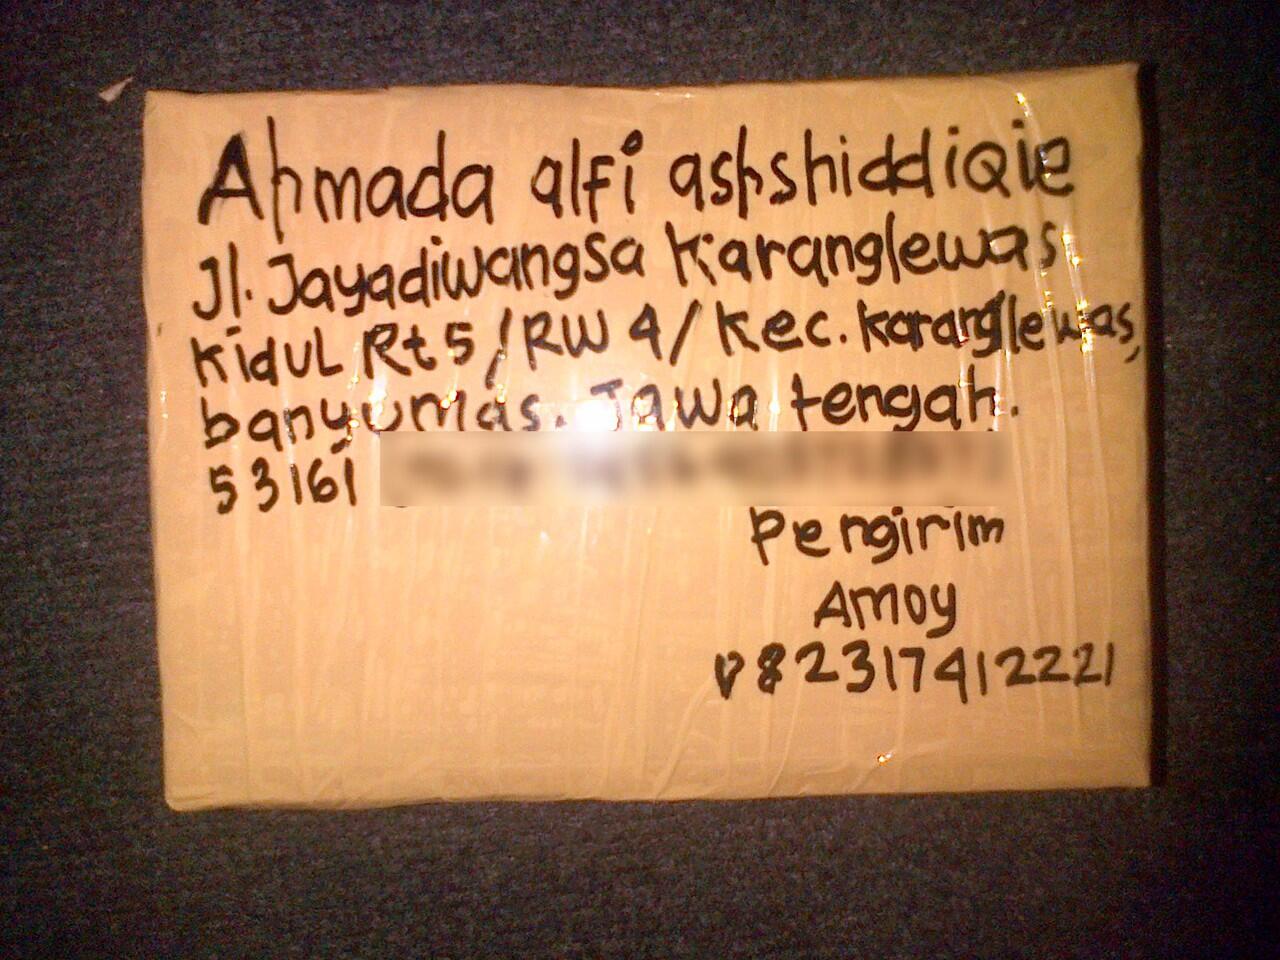 Ahmada alfi ashshiddiqie
Jl. Jayadiwangsa Karanglewas
Kidul Rt 5 / RW 4 / Kec. Karanglewas,
banyumas. Jawa tengah.
53161
Pengirim
Amoy
082317412221